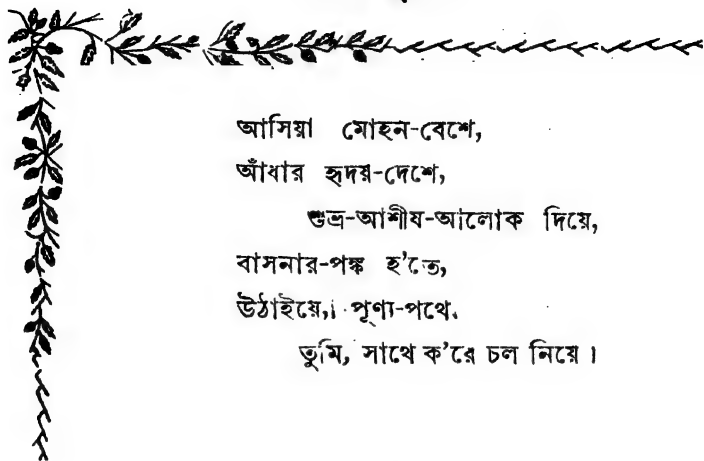 আসিয়া মোহন-বেশে,
আঁধার হৃদয়-দেশে,
শুভ্র-আশীষ-আলোক দিয়ে,
বাসনার-পঙ্ক হ'তে,
উঠাইয়ে, পূণ্য-পথে.
তুমি, সাথে ক'রে চল নিয়ে।